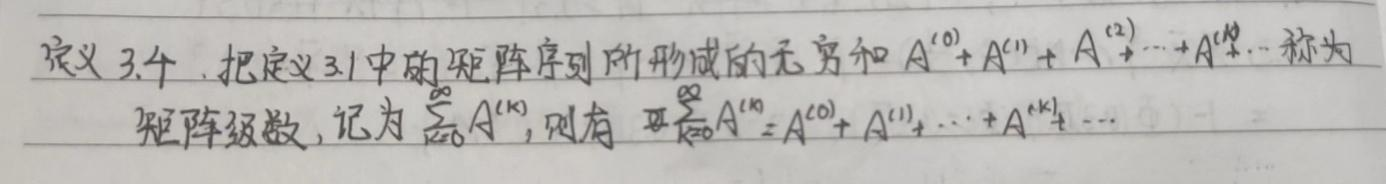 定义 3.4. 把定义3.1中的矩阵序列所形成的无穷和 A^{(0)}+A^{(1)}+A^{(2)}+⋯+A^{(k)}+⋯ 称为
矩阵级数,记为 \sum_{k=0}^{∞} A^{(k)},则有 \sum_{k=0}^{∞} A^{(k)}=A^{(0)}+A^{(1)}+⋯+A^{(k)}+⋯